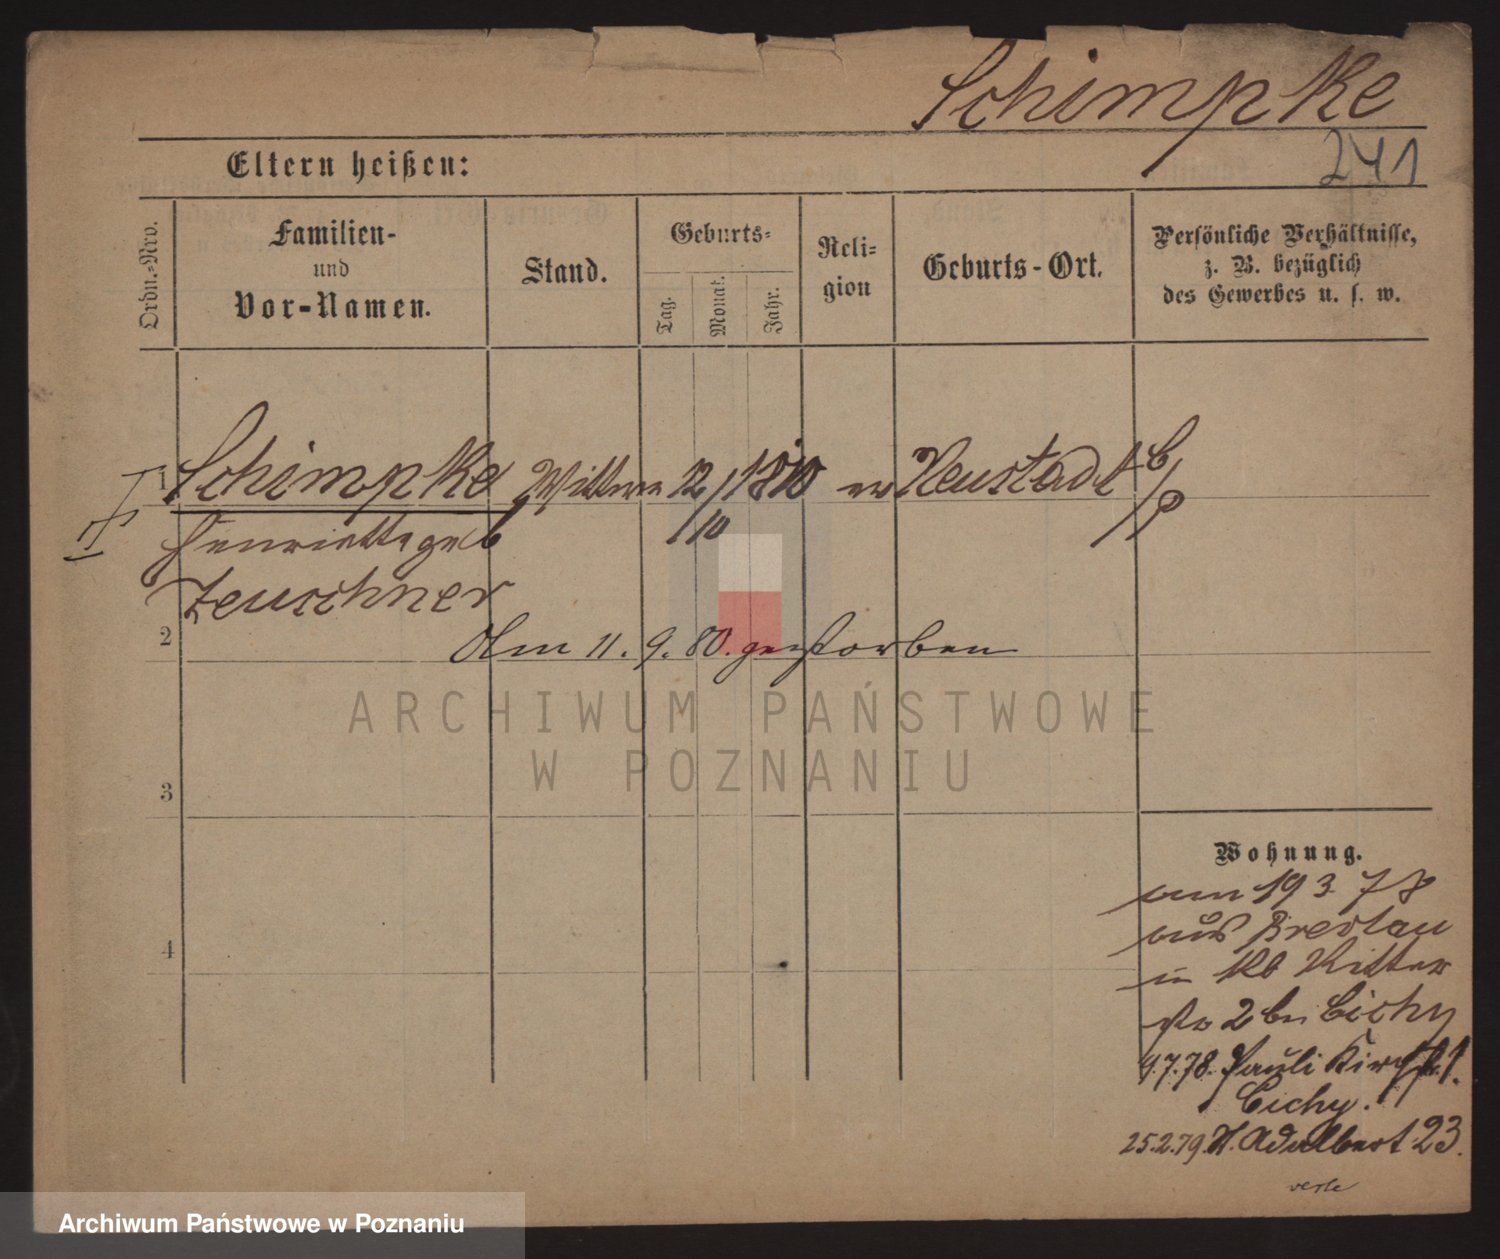 Schimpke
241
Eltern heißen:
Ordn.-Nro.
Familien-
und
Vor-Namen.
Stand.
Geburts-
Tag.
Monat.
Jahr.
Reli-
gion
Geburts-Ort.
Persönliche Verhältnisse,
z. B. bezüglich
des Gewerbes u. s. w.
1 Schimpke Wittwe 12/10 1810 ev Neustadt b/P
Henriette geb
Zeuschner
2
Am 11. 9. 80. gestorben
ARCHIWUM PAŃSTWOWE
W POZNANIU
3
Wohnung.
am 19 3 78
aus Breslau
in Kb Ritter
str 2 bei Cichy
4
9.7.78. Pauli Kirchstr. 1.
Cichy.
25.2.79. St. Adalbert 23.
Archiwum Państwowe w Poznaniu